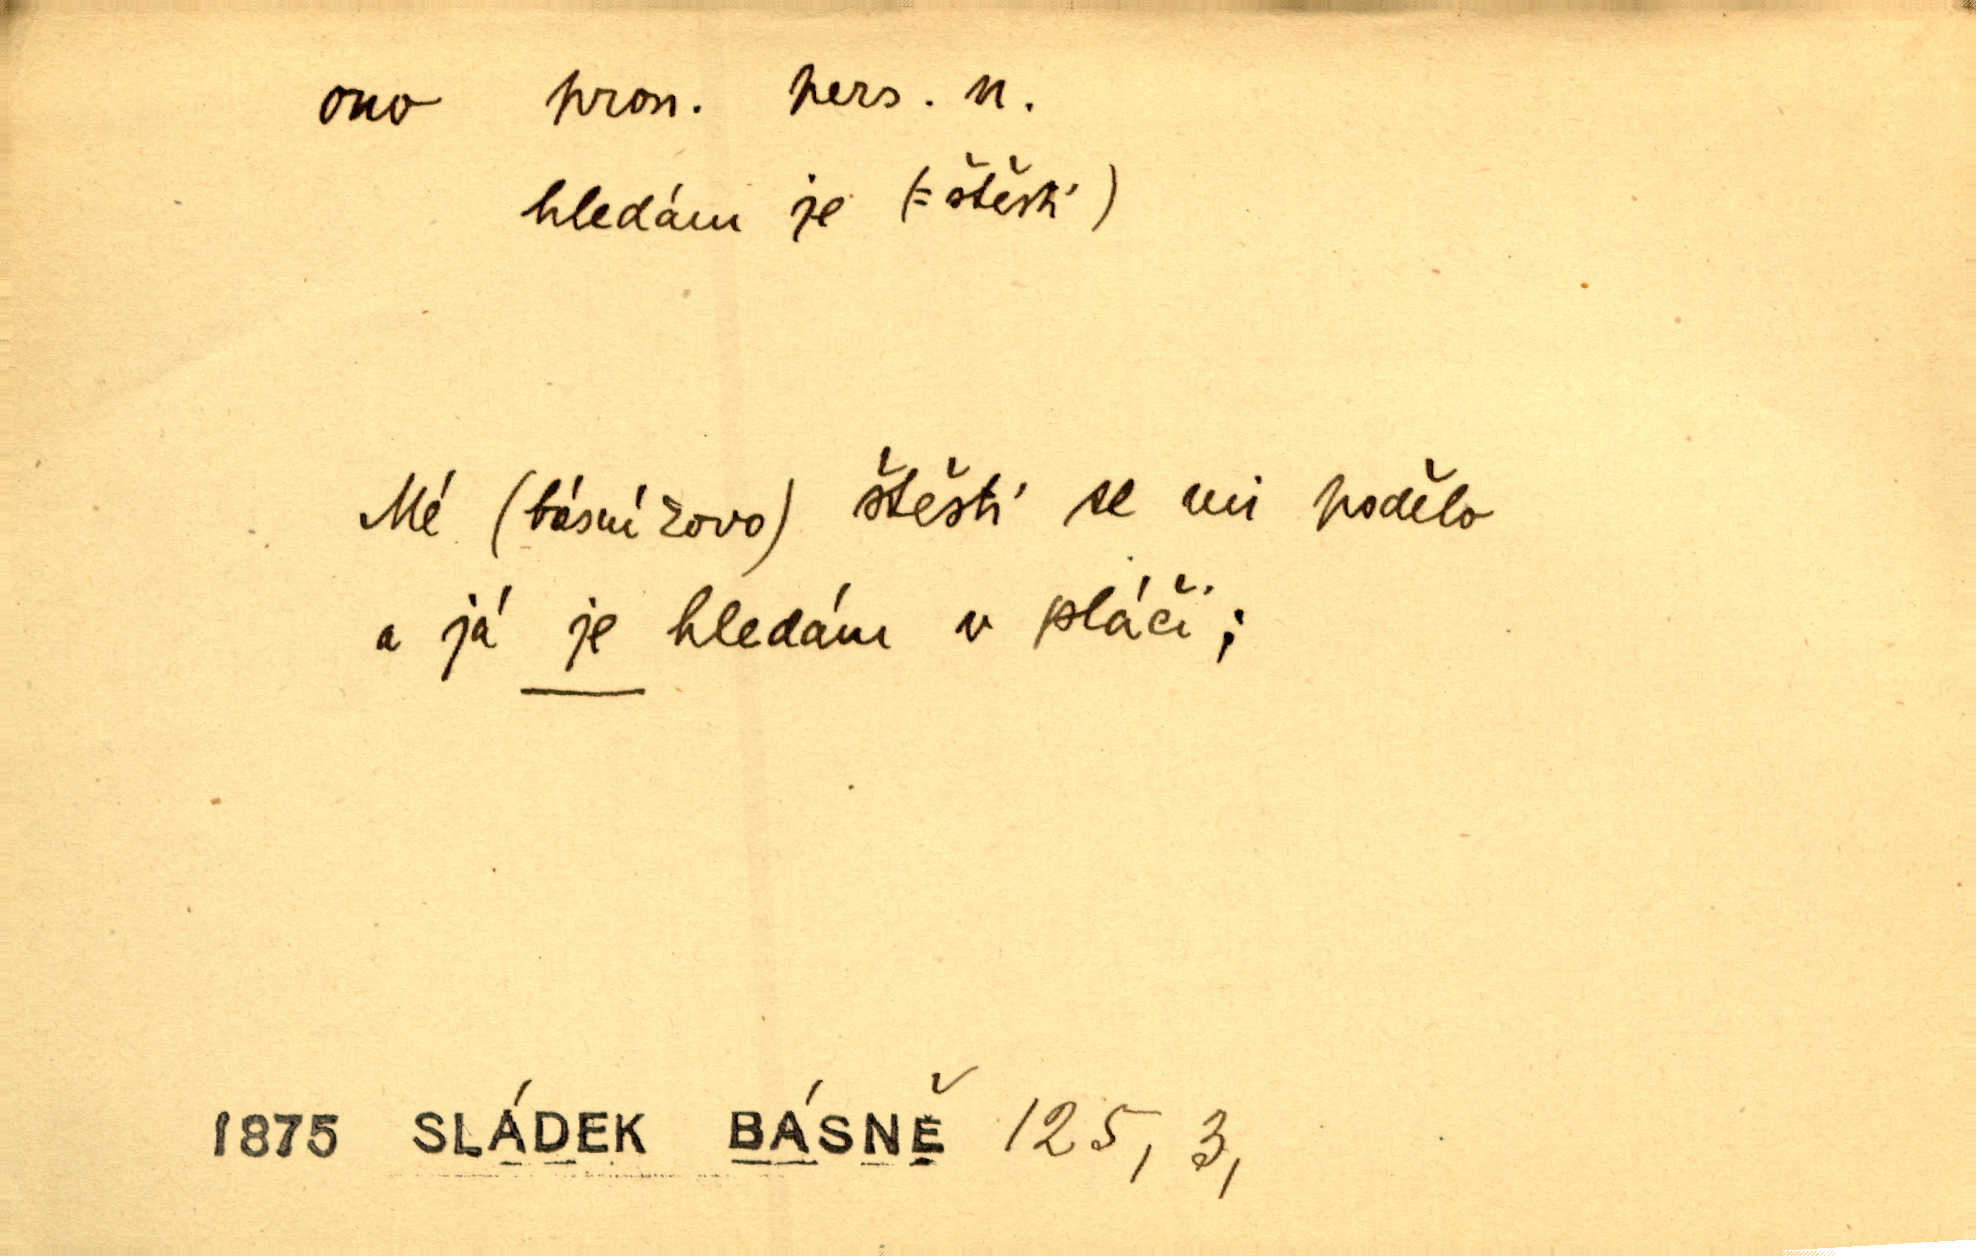 ono pron. pers. n.
hledám je (= štěstí)
Mé (básníkovo) štěstí se mi podělo
a já je hledám v pláči;
1875 SLÁDEK BÁSNĚ 125, 3,